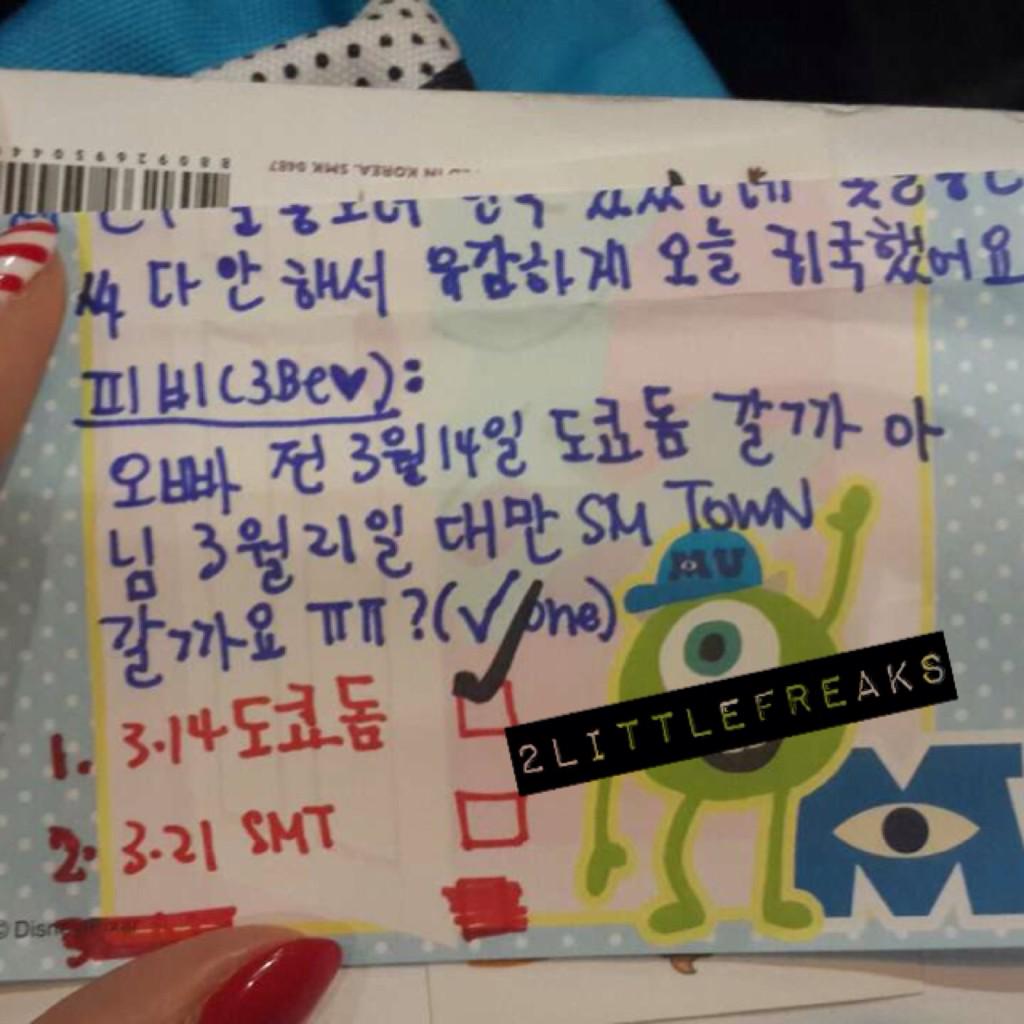 ED IN KOREA. SMK 0487
싹 다 안 해서 유감하게 오늘 귀국했어요
피비(3Be♥):
오빠 전 3월14일 도쿄돔 갈까 아
님 3월21일 대만 SM TOWN
갈까요 ㅠㅠ?(✓one)
1. 3.14 도쿄돔 ✓
2. 3.21 SMT
MU
2LITTLEFREAKS
© Disney